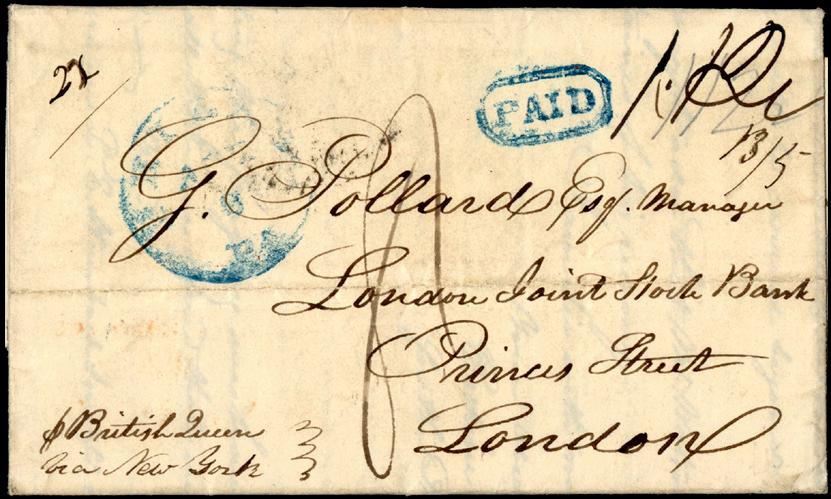 PAID
G. Pollard Esqr. Manager
London Joint Stock Bank
Princes Street
London
British Queen
via New York